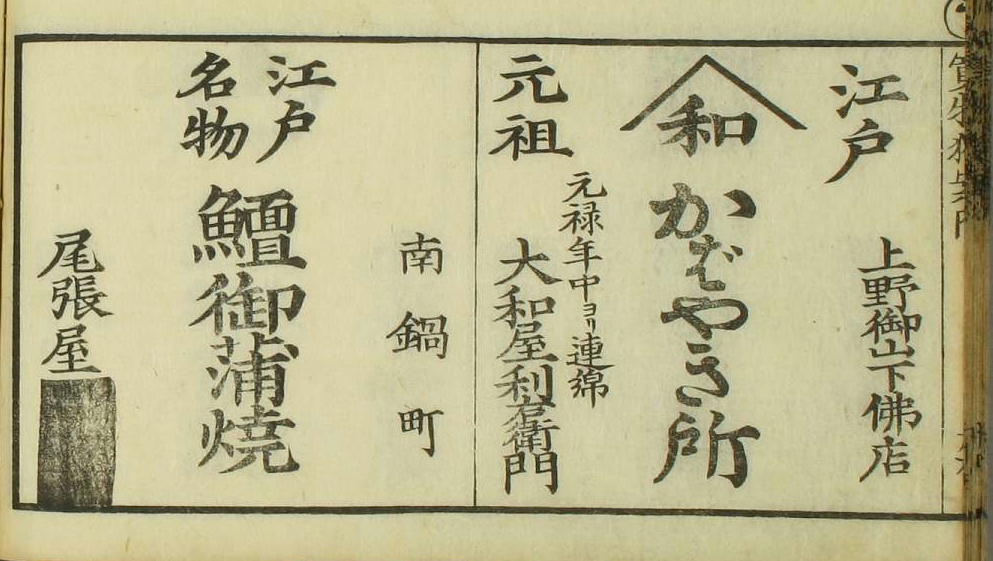 江戸
上野御山下佛店
和
かばやき所
元禄年中ヨリ連綿
元祖
大和屋利右衛門
南鍋町
江戸
名物
鱣御蒲焼
尾張屋